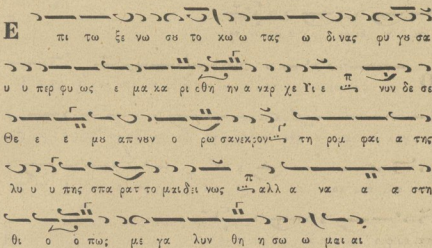 Ε πι τω ξε νω σου το κω ω τας ω δι νας φυ γου σα
υ υ περ φυ ως ε μα κα ρι σθη ην α ναρ χε Υι ε νυν δε σε
Θε ε ε μου απ νουν ο ρω σα νεκρον τη ρομ φαι α της
λυ υ υ πης σπα ρατ το μαι δει νως αλλ α να α α στη
θι ο ο πως με γα λυν θη η σω ω μαι αι